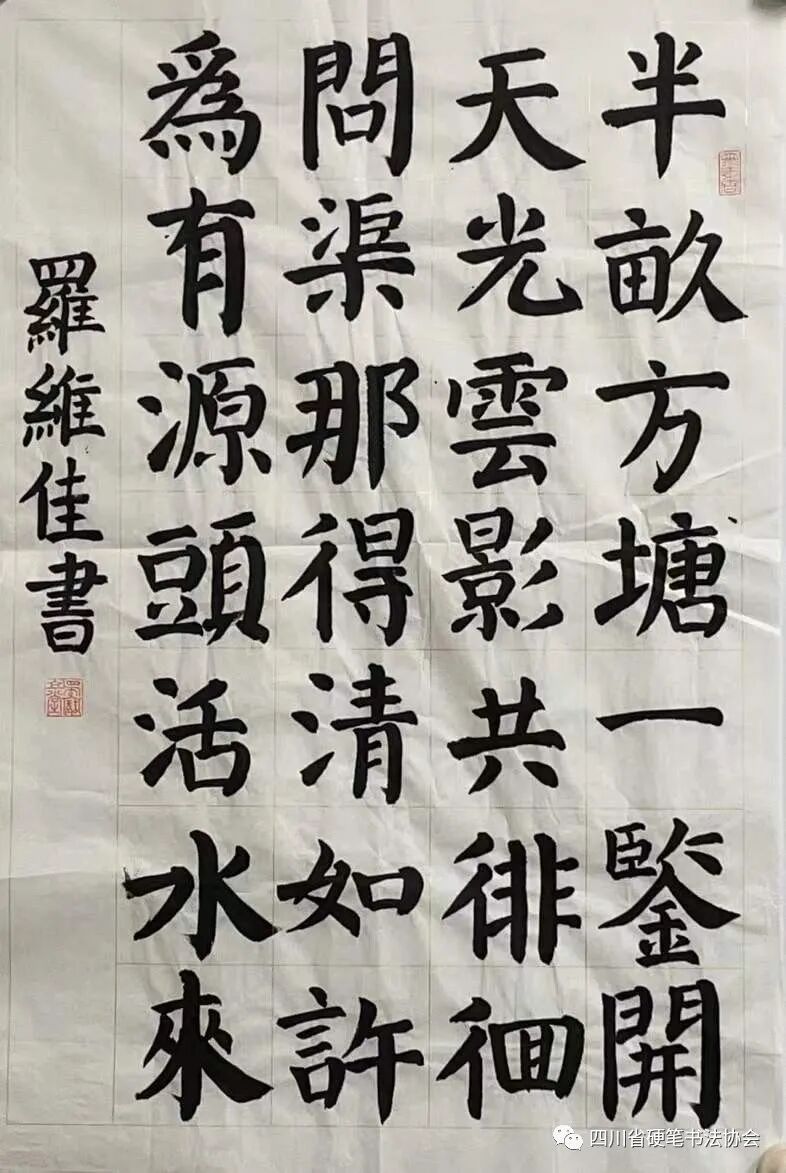 半畝方塘一鑒開
天光雲影共徘徊
問渠那得清如許
爲有源頭活水來
羅維佳書
四川省硬笔书法协会